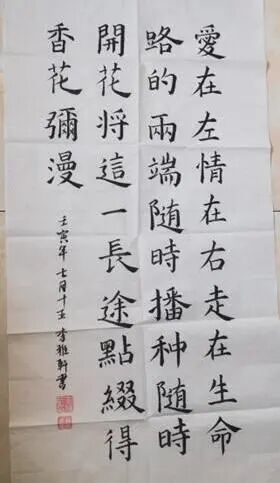 愛在左情在右走在生命
路的兩端随時播种随時
開花将這一長途點綴得
香花彌漫
壬寅年七月十五李雅軒書